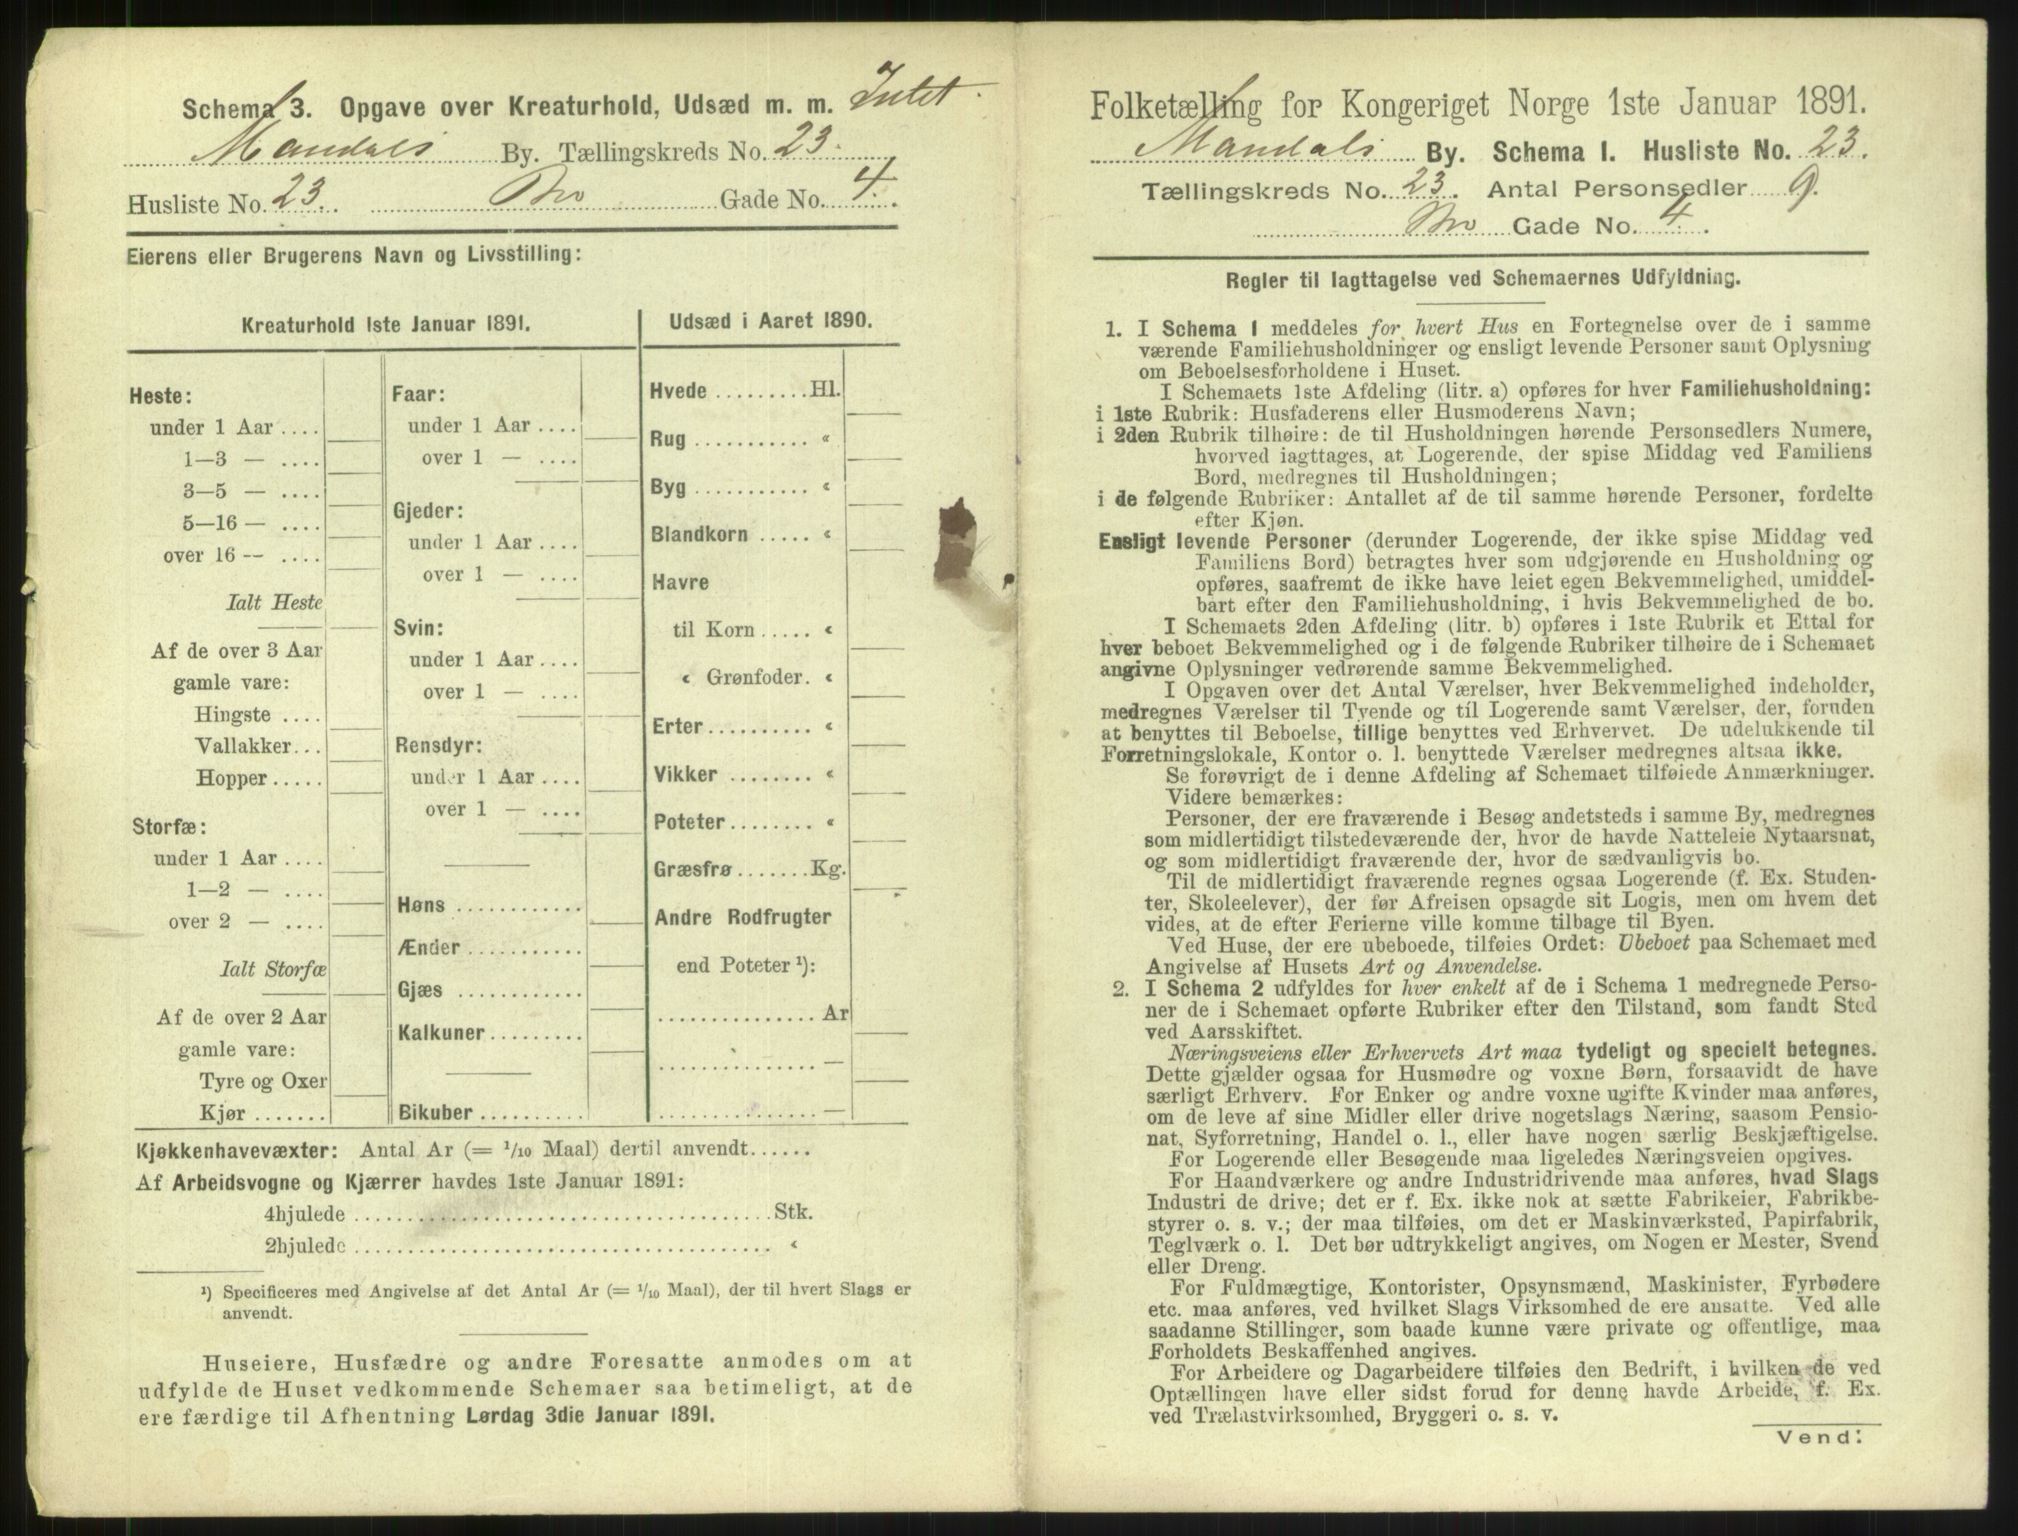 Schema 3. Opgave over Kreaturhold, Udsæd m. m. Intet.
Mandals By. Tællingskreds No. 23.
Husliste No. 23. Bro Gade No. 4.
Eierens eller Brugerens Navn og Livsstilling:
Kreaturhold 1ste Januar 1891.
Heste:
under 1 Aar ....
1—3 — ....
3—5 — ....
5—16 — ....
over 16 — ....
Ialt Heste
Af de over 3 Aar
gamle vare:
Hingste ....
Vallakker...
Hopper .....
Storfæ:
under 1 Aar ....
1—2 — ....
over 2 — ....
Ialt Storfæ
Af de over 2 Aar
gamle vare:
Tyre og Oxer
Kjør .......
Faar:
under 1 Aar ....
over 1 — ....
Gjeder:
under 1 Aar ....
over 1 — ....
Svin:
under 1 Aar ....
over 1 — ....
Rensdyr:
under 1 Aar ....
over 1 — ....
Høns ............
Ænder ...........
Gjæs ............
Kalkuner.........
Bikuber..........
Udsæd i Aaret 1890.
Hvede .........Hl.
Rug ........... «
Byg ........... «
Blandkorn ..... «
Havre
til Korn ..... «
« Grønfoder. «
Erter .......... «
Vikker ........ «
Poteter ........ «
Græsfrø .......Kg.
Andre Rodfrugter
end Poteter ¹):
............... Ar
............... —
............... —
Kjøkkenhavevæxter: Antal Ar (= 1/10 Maal) dertil anvendt......
Af Arbeidsvogne og Kjærrer havdes 1ste Januar 1891:
4hjulede ........................................Stk.
2hjulede ........................................ «
¹) Specificeres med Angivelse af det Antal Ar (= 1/10 Maal), der til hvert Slags er
anvendt.
Huseiere, Husfædre og andre Foresatte anmodes om at
udfylde de Huset vedkommende Schemaer saa betimeligt, at de
ere færdige til Afhentning Lørdag 3die Januar 1891.
Folketælling for Kongeriget Norge 1ste Januar 1891.
Mandals By. Schema 1. Husliste No. 23.
Tællingskreds No. 23. Antal Personsedler 9.
Bro Gade No. 4.
Regler til Iagttagelse ved Schemaernes Udfyldning.
1. I Schema 1 meddeles for hvert Hus en Fortegnelse over de i samme
værende Familiehusholdninger og ensligt levende Personer samt Oplysning
om Beboelsesforholdene i Huset.
I Schemaets 1ste Afdeling (litr. a) opføres for hver Familiehusholdning:
i 1ste Rubrik: Husfaderens eller Husmoderens Navn;
i 2den Rubrik tilhøire: de til Husholdningen hørende Personsedlers Numere,
hvorved iagttages, at Logerende, der spise Middag ved Familiens
Bord, medregnes til Husholdningen;
i de følgende Rubriker: Antallet af de til samme hørende Personer, fordelte
efter Kjøn.
Ensligt levende Personer (derunder Logerende, der ikke spise Middag ved
Familiens Bord) betragtes hver som udgjørende en Husholdning og
opføres, saafremt de ikke have leiet egen Bekvemmelighed, umiddel-
bart efter den Familiehusholdning, i hvis Bekvemmelighed de bo.
I Schemaets 2den Afdeling (litr. b) opføres i 1ste Rubrik et Ettal for
hver beboet Bekvemmelighed og i de følgende Rubriker tilhøire de i Schemaet
angivne Oplysninger vedrørende samme Bekvemmelighed.
I Opgaven over det Antal Værelser, hver Bekvemmelighed indeholder,
medregnes Værelser til Tyende og til Logerende samt Værelser, der, foruden
at benyttes til Beboelse, tillige benyttes ved Erhvervet. De udelukkende til
Forretningslokale, Kontor o. l. benyttede Værelser medregnes altsaa ikke.
Se forøvrigt de i denne Afdeling af Schemaet tilføiede Anmærkninger.
Videre bemærkes:
Personer, der ere fraværende i Besøg andetsteds i samme By, medregnes
som midlertidigt tilstedeværende der, hvor de havde Natteleie Nytaarsnat,
og som midlertidigt fraværende der, hvor de sædvanligvis bo.
Til de midlertidigt fraværende regnes ogsaa Logerende (f. Ex. Studen-
ter, Skoleelever), der før Afreisen opsagde sit Logis, men om hvem det
vides, at de efter Ferierne ville komme tilbage til Byen.
Ved Huse, der ere ubeboede, tilføies Ordet: Ubeboet paa Schemaet med
Angivelse af Husets Art og Anvendelse.
2. I Schema 2 udfyldes for hver enkelt af de i Schema 1 medregnede Perso-
ner de i Schemaet opførte Rubriker efter den Tilstand, som fandt Sted
ved Aarsskiftet.
Næringsveiens eller Erhvervets Art maa tydeligt og specielt betegnes.
Dette gjælder ogsaa for Husmødre og voxne Børn, forsaavidt de have
særligt Erhverv. For Enker og andre voxne ugifte Kvinder maa anføres,
om de leve af sine Midler eller drive nogetslags Næring, saasom Pensio-
nat, Syforretning, Handel o. l., eller have nogen særlig Beskjæftigelse.
For Logerende eller Besøgende maa ligeledes Næringsveien opgives.
For Haandværkere og andre Industridrivende maa anføres, hvad Slags
Industri de drive; det er f. Ex. ikke nok at sætte Fabrikeier, Fabrikbe-
styrer o. s. v.; der maa tilføies, om det er Maskinværksted, Papirfabrik,
Teglværk o. l. Det bør udtrykkeligt angives, om Nogen er Mester, Svend
eller Dreng.
For Fuldmægtige, Kontorister, Opsynsmænd, Maskinister, Fyrbødere
etc. maa anføres, ved hvilket Slags Virksomhed de ere ansatte. Ved alle
saadanne Stillinger, som baade kunne være private og offentlige, maa
Forholdets Beskaffenhed angives.
For Arbeidere og Dagarbeidere tilføies den Bedrift, i hvilken de ved
Optællingen have eller sidst forud for denne havde Arbeide, f. Ex.
ved Trælastvirksomhed, Bryggeri o. s. v.
Vend: